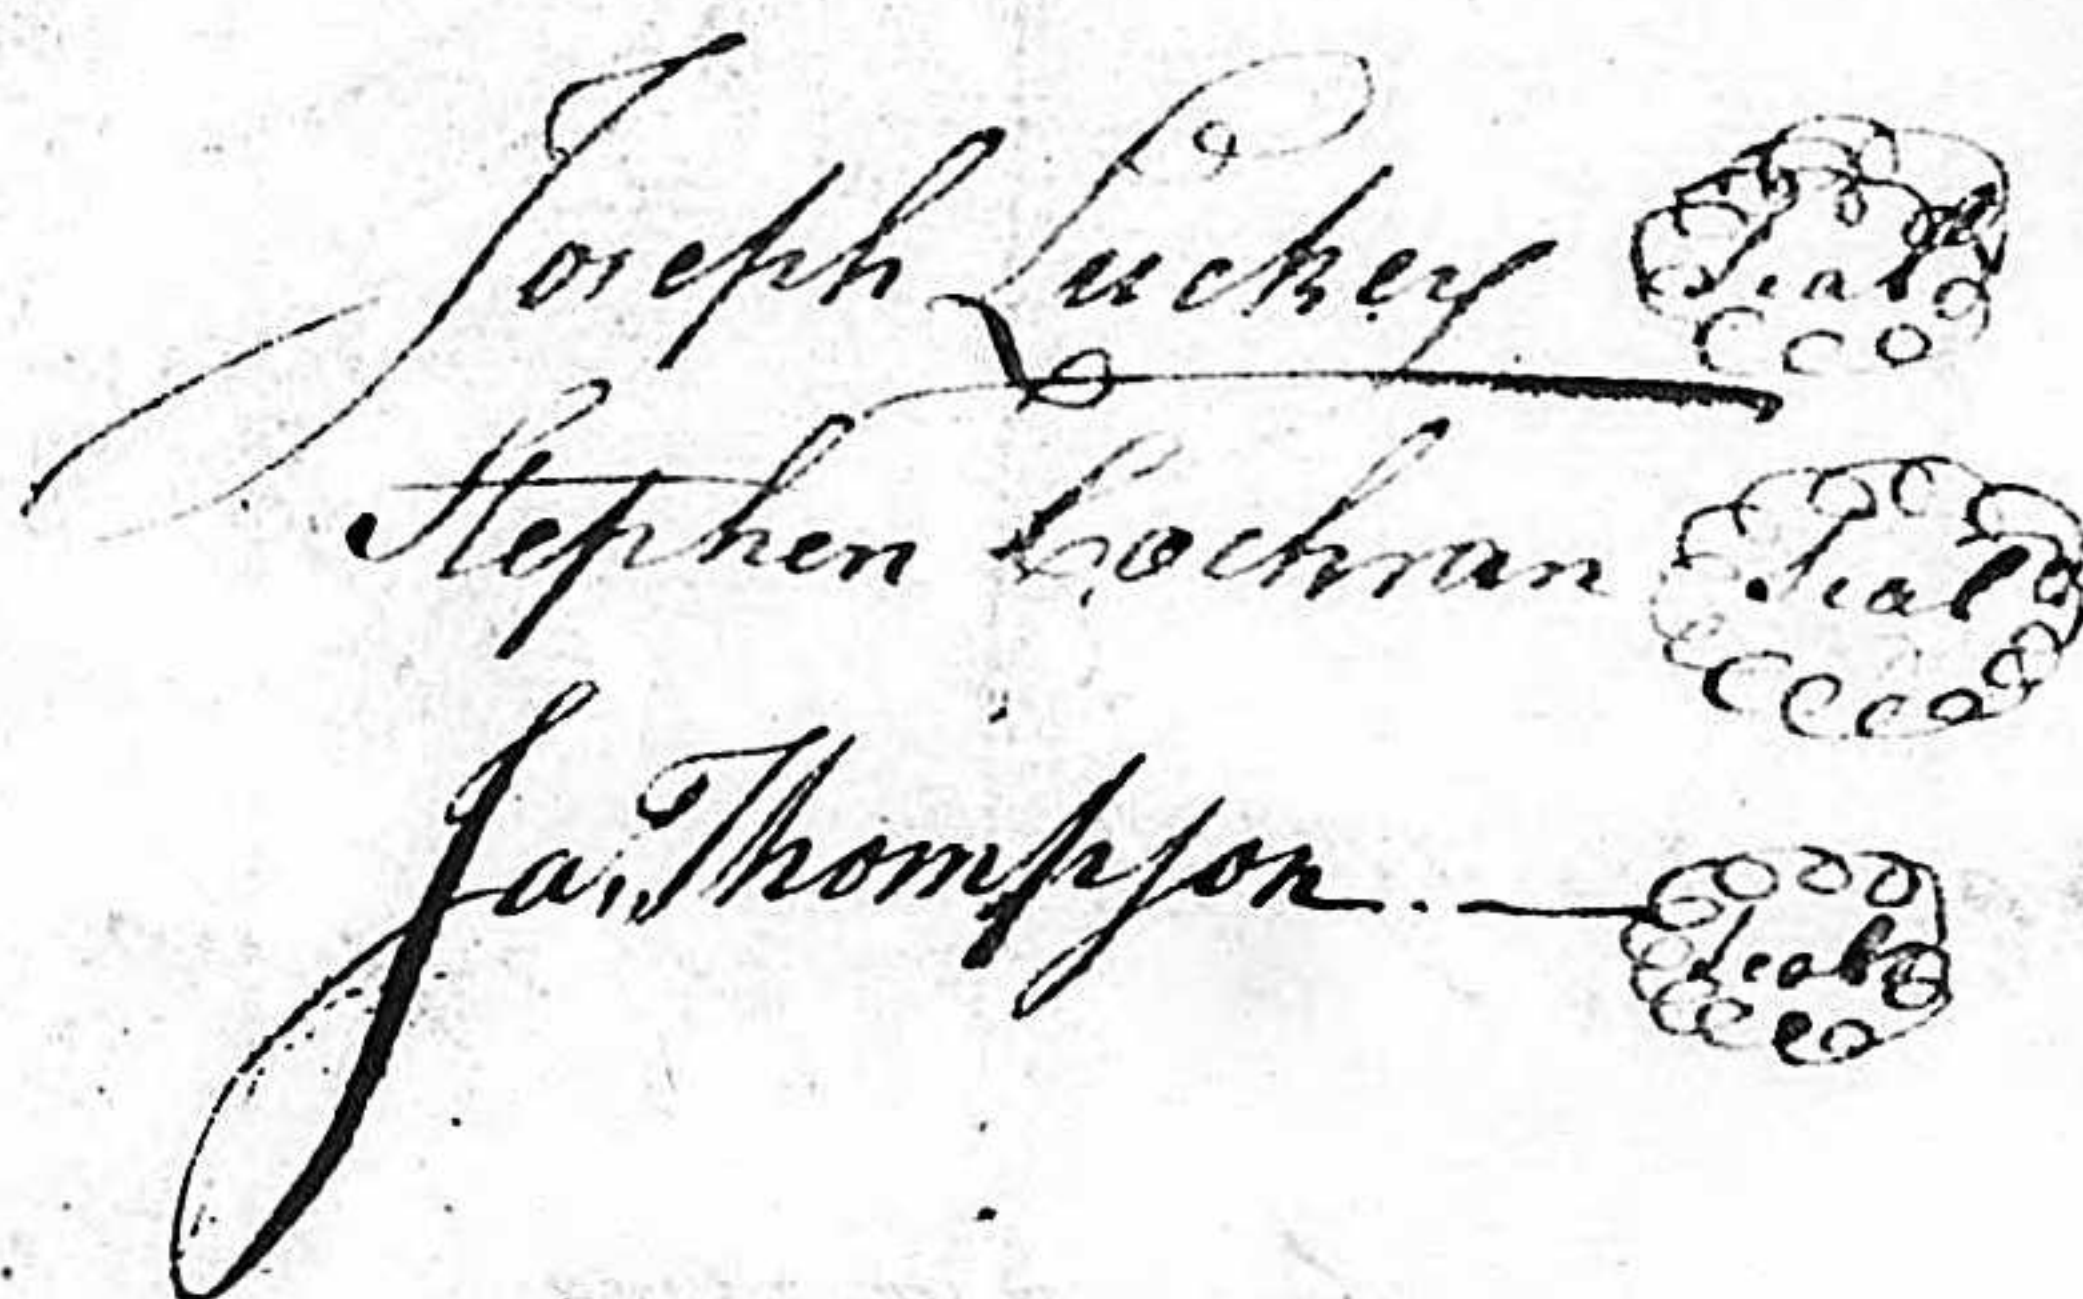 Joseph Luckey Seal
Stephen Cochran Seal
Ja. Thompson. — Seal